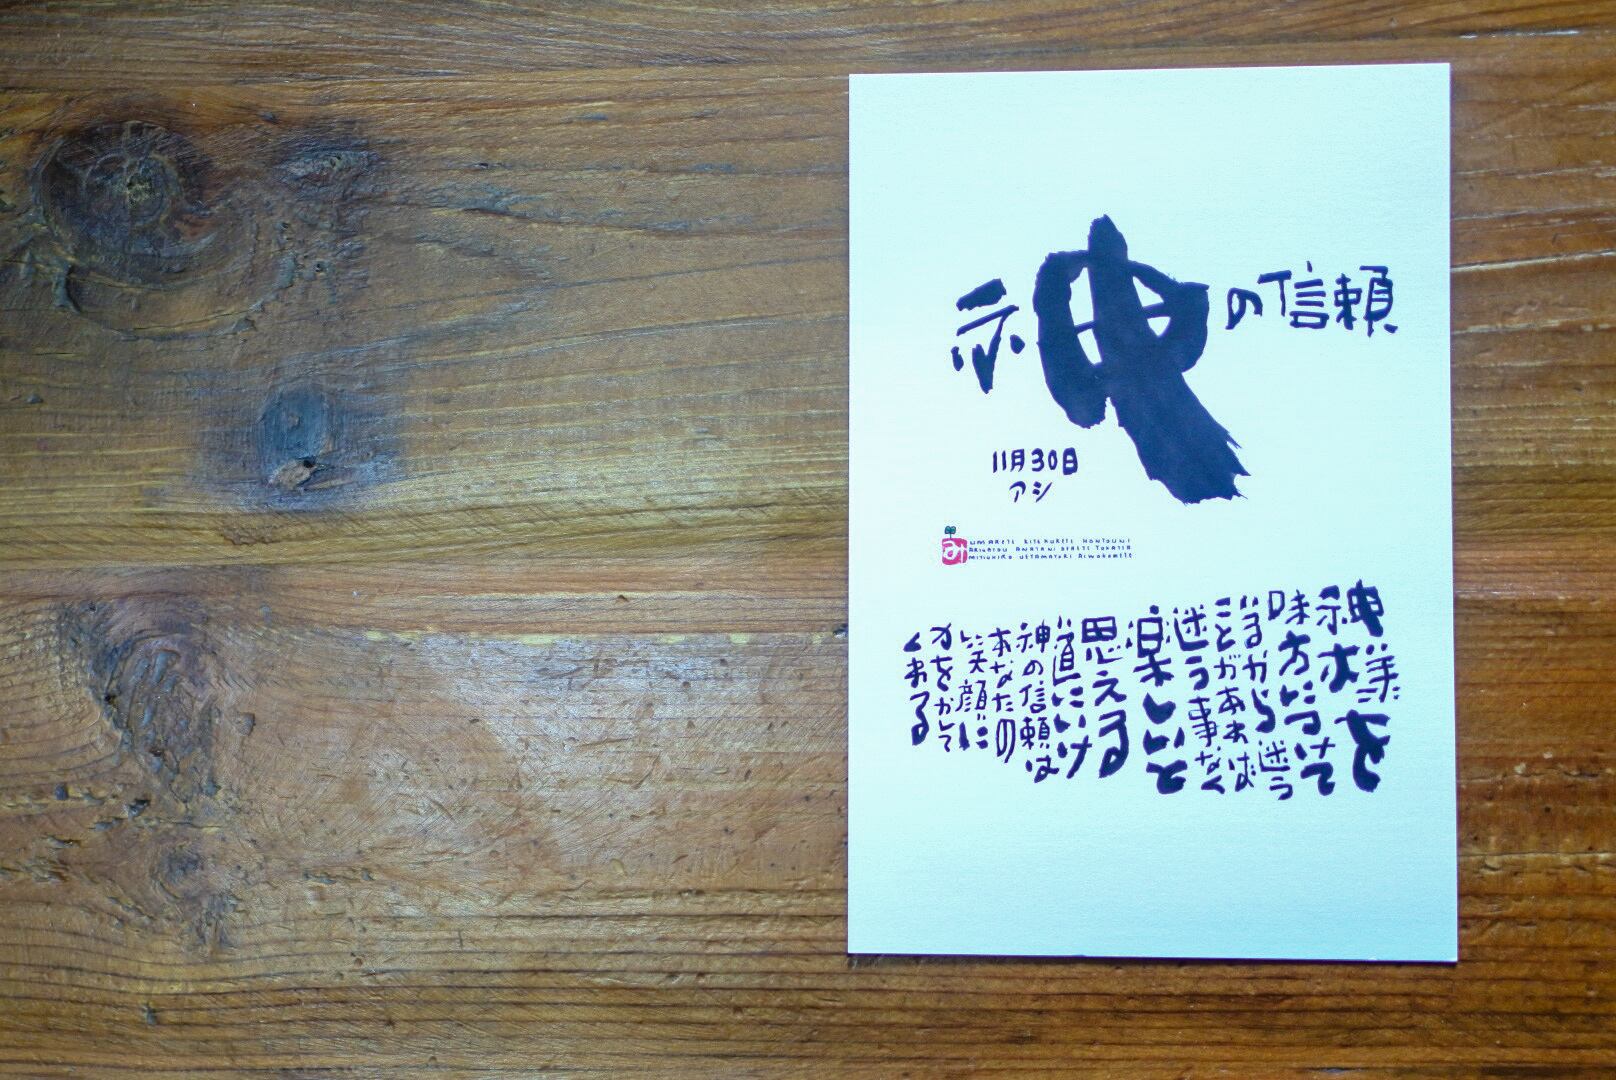 神の信頼
11月30日
アシ
み
UMARETE KITEKURETE HONTOUNI
ARIGATOU ANATANI DEAETE YOKATTA
MITIOHIRO UETAMAYORI AIWOKOMETE
神様を
味方につけて
いるから迷う
ことがあれば
迷う事なく
楽しいと
思える
道にいけ
神の信頼は
本なたの
笑顔に
力をかして
くれる